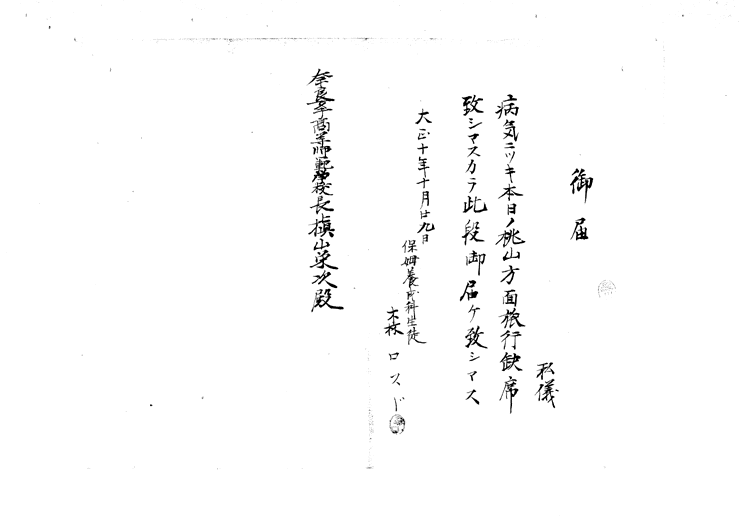 御届
私儀
病気ニツキ本日ノ桃山方面旅行缺席
致シマスカラ此段御届ケ致シマス
大正十年十月廿九日
保姆養成科生徒
森 ロスド
奈良女高等師範学校長槇山栄次殿